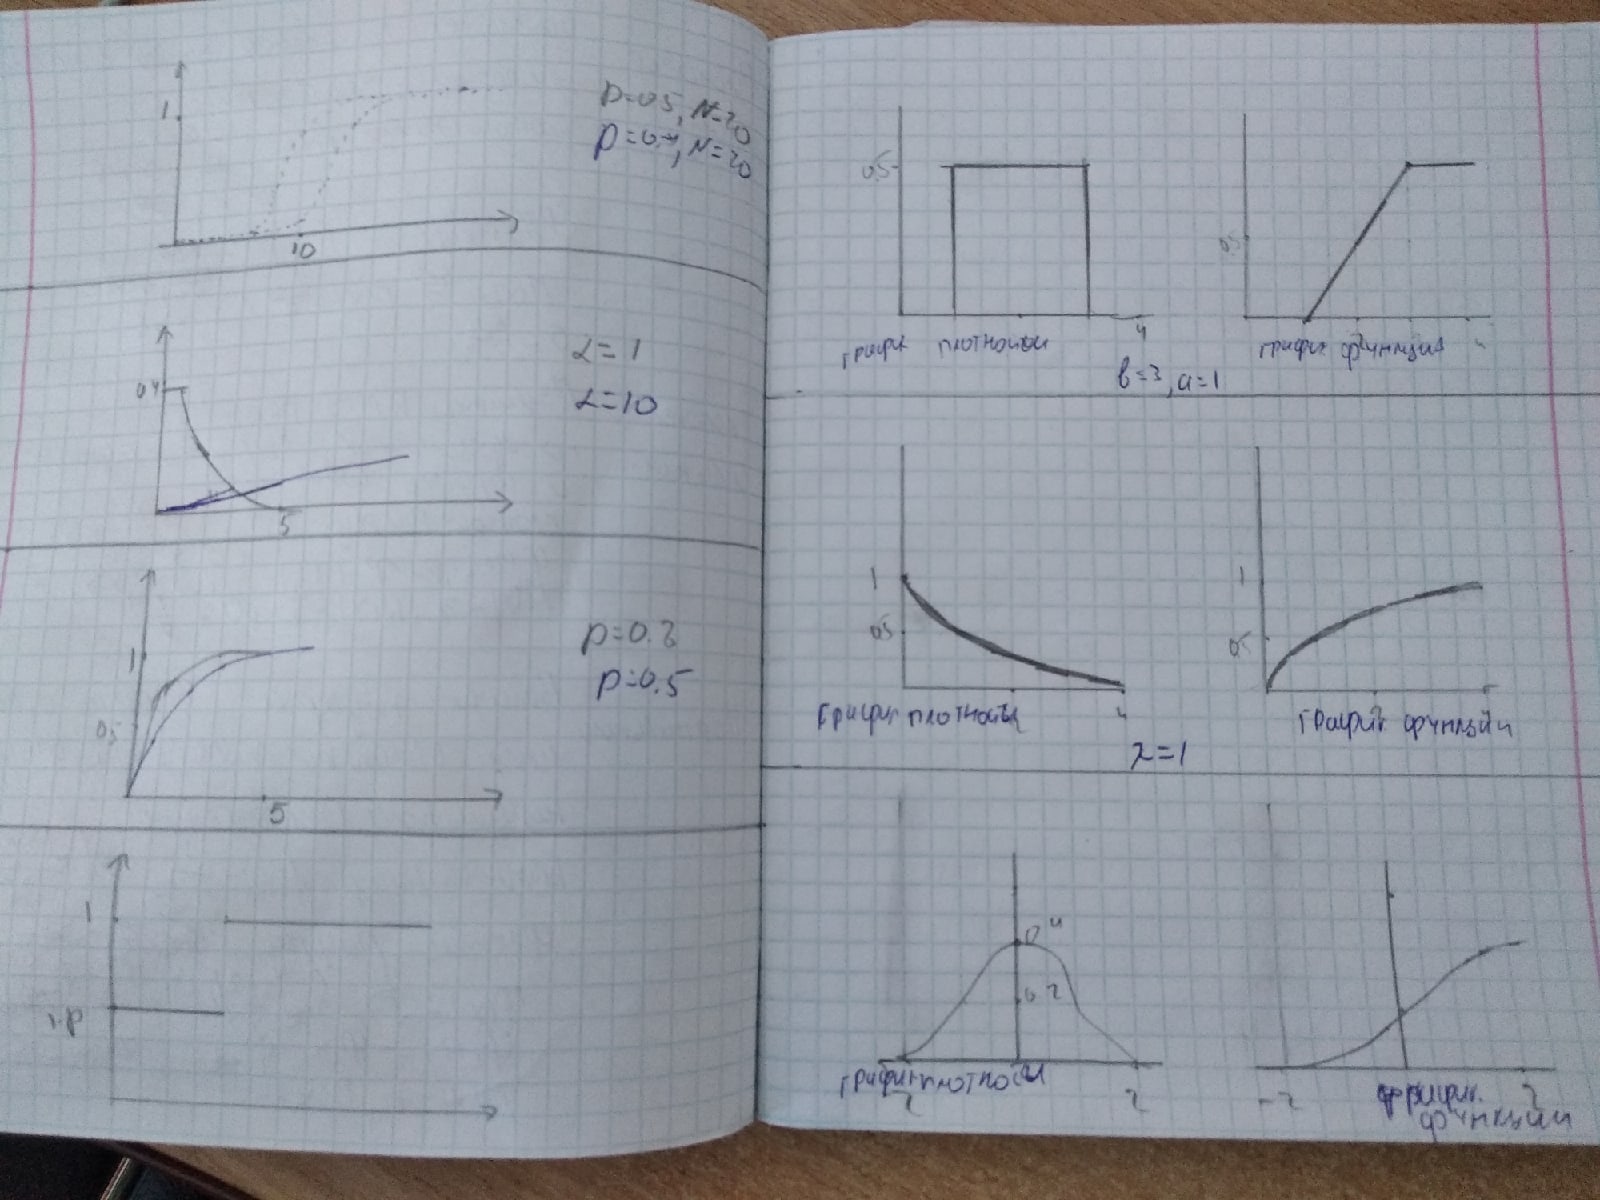 1
10
p=0.5, N=20
0.4
5
λ=1
λ=10
1
0,5
5
p=0.5
1
1-p
0.5
4
график плотности
b=3, a=1
0.5
2
график функция
1
0.5
4
график плотности
λ=1
1
0.5
график функции
0.4
0.2
график плотности
2
-2
2
график
функции